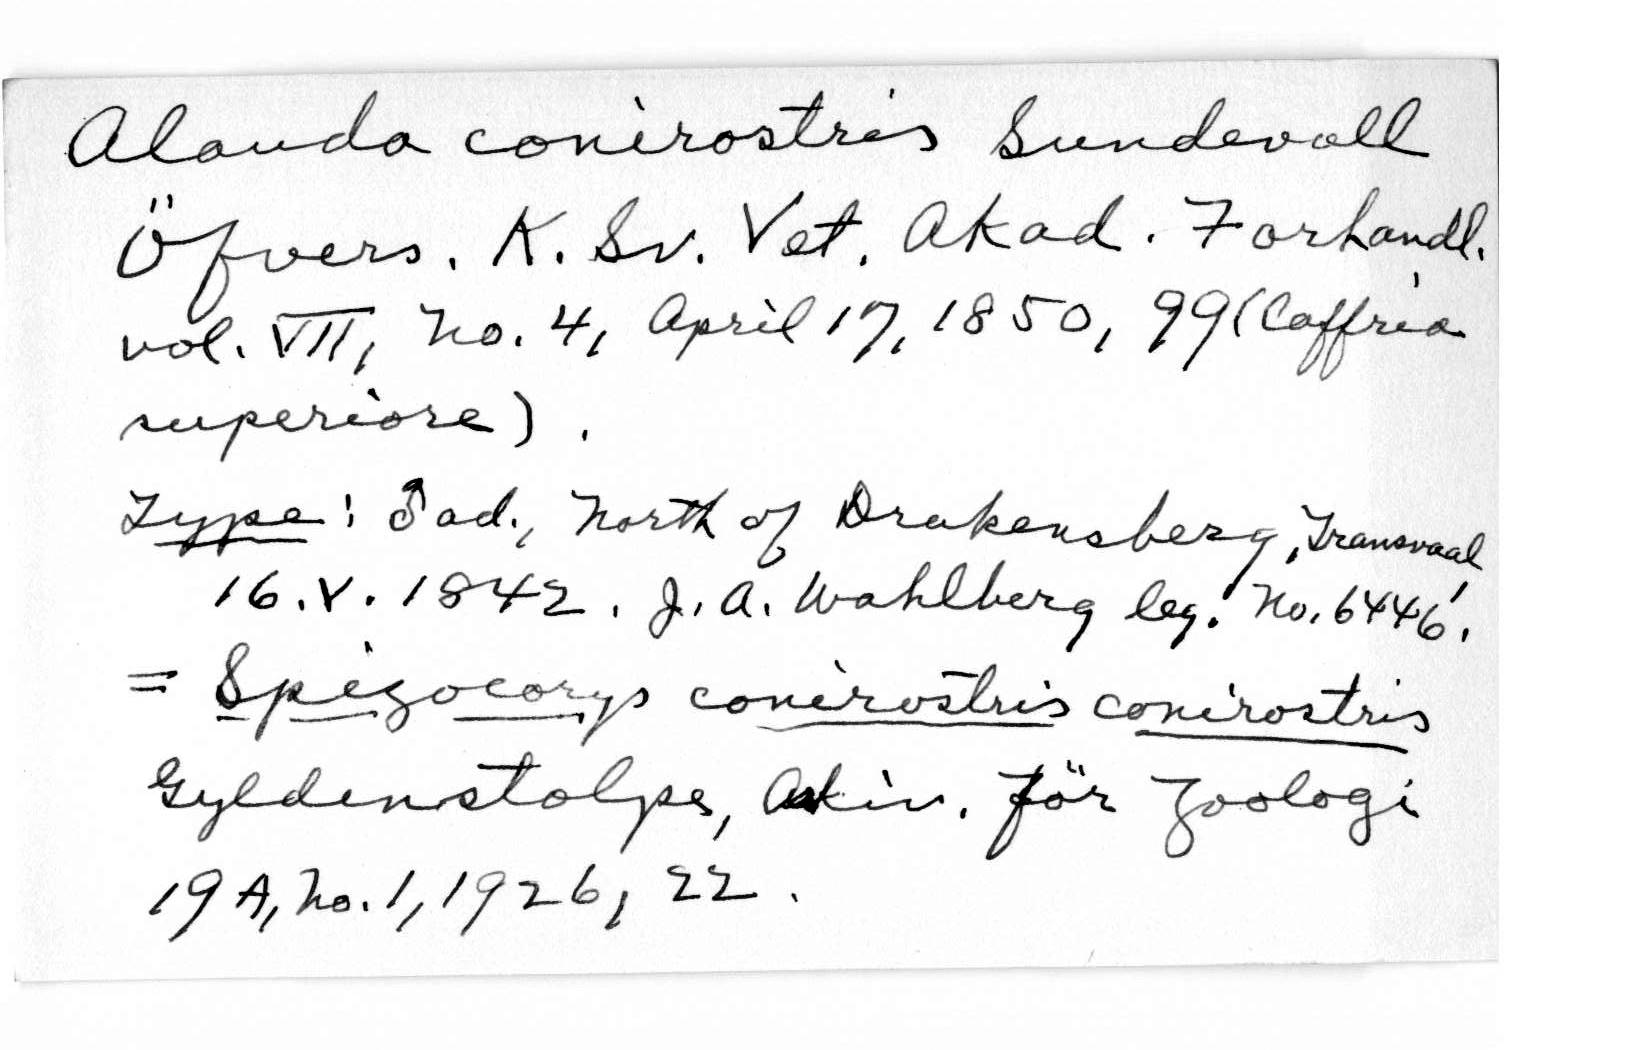 Alauda conirostris Sundevall
Öfvers. K. Sv. Vet. Akad. Forhandl.
vol. VII, No. 4, April 17, 1850, 99 (Caffria
superiore).
Type: ♂ ad., North of Drakensberg, Transvaal
16.V.1842. J. A. Wahlberg leg. No. 6446.
= Spizocorys conirostris conirostris
Gyldenstolpe, Arkiv. för Zoologi
19A, No. 1, 1926, 22.